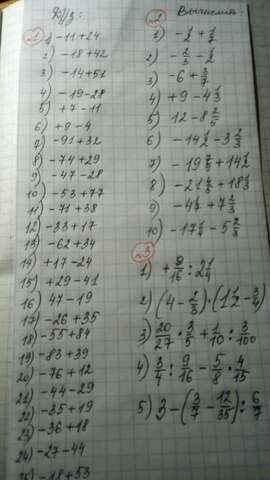 Д/з:
№1
1) -11+24
2) -18+42
3) -14+51
4) -19-28
5) +7-11
6) +9-4
7) -91+32
8) -74+29
9) -47-28
10) -53+77
11) -71+38
12) -33+17
13) -62+34
14) +17-24
15) +29-41
16) 47-19
17) -26+35
18) -55+84
19) -83+39
20) -76+12
21) -44-29
22) -35+19
23) -36+18
24) -27-44
25) -18+53
№2 Вычислить:
2) -2/3-1/2
3) -6+3/7
4) +9-4 1/3
5) 12-8 2/5
6) -14 1/2-3 2/3
10) -17 1/4-5 2/3
№3
1) +9/16:2 1/4
2) (4-2/3)·(1 1/2-3/4)
3) 20/27·3/5+1/10:3/100
4) 3/4:9/16-5/8·4/15
5) 3-(3/7-12/35):6/7